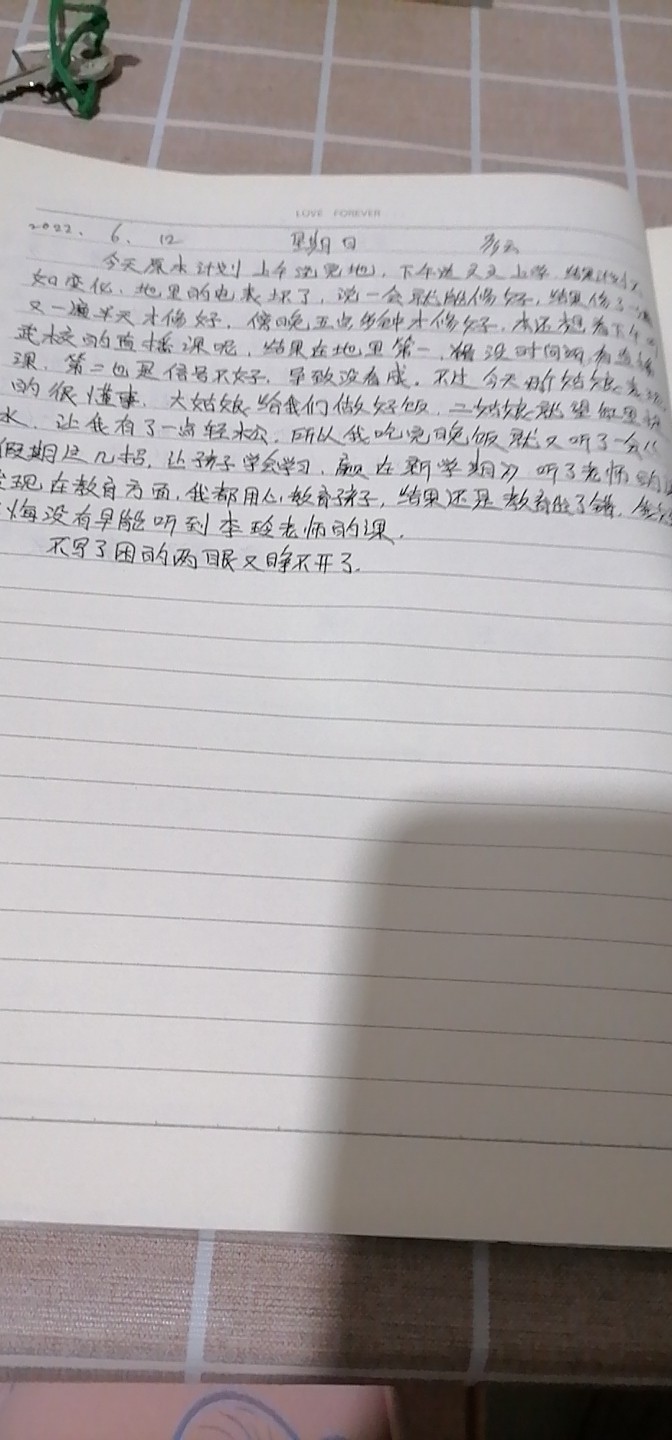 LOVE FOREVER
2022. 6. 12 星期日 多云
今天原本计划上午浇完地,下午送文文上学,结果计划不
如变化,地里的电表坏了,说一会就能修好,结果修了一遍
又一遍半天才修好,傍晚五点多钟才修好,本还想着下午听
武校的直播课呢,结果在地里第一,根没时间听直播
课,第二也是信号不好,导致没看成。不过今天两个姑娘表现
的很懂事,大姑娘给我们做好饭,二姑娘就望缸里接
水,让我有了一点轻松,所以我吃完晚饭就又听了一会《
假期这几招,让孩子学会学习,赢在新学期》听了老师的
发现在教育方面,我都用心教育孩子,结果还是教育错了
悔没有早能听到李玲老师的课.
不写了困的两眼又睁不开了.